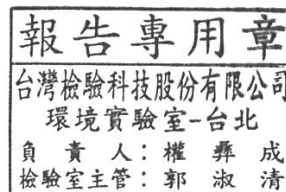 報告專用章
台灣檢驗科技股份有限公司
環境實驗室-台北
負責人：權彞成
檢驗室主管：郭淑清